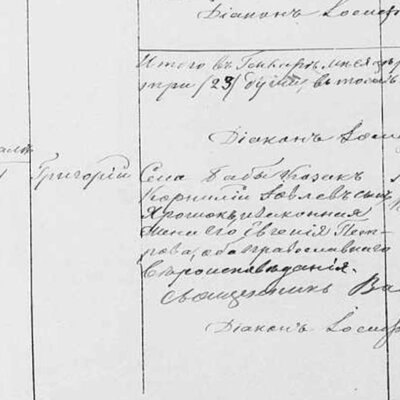 Діаконъ Іосиф
Итого въ Генварѣ мѣся
три (23) въ томъ
Діаконъ
Григорій
Села Бабы Козакъ
Корнилій Іовлевъ сынъ
Хрошокъ и законная
жена его Евгенія Пет-
рова, оба православнаго
вѣроисповѣданія.
Священникъ Ва
Діаконъ Іосиф